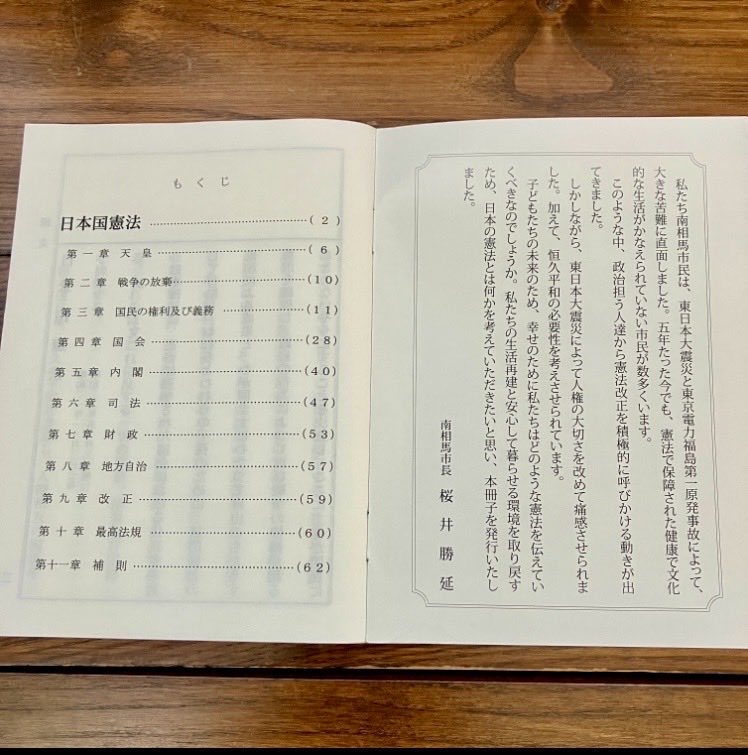 もくじ
日本国憲法 ……………………………( 2 )
第一章 天 皇 ……………………………( 6 )
第二章 戦争の放棄……………………………(10)
第三章 国民の権利及び義務 ……………………(11)
第四章 国 会 ……………………………(28)
第五章 内 閣 ……………………………(40)
第六章 司 法 ……………………………(47)
第七章 財 政 ……………………………(53)
第八章 地方自治 ……………………………(57)
第九章 改 正 ……………………………(59)
第十章 最高法規 ……………………………(60)
第十一章 補 則 ……………………………(62)
私たち南相馬市民は、東日本大震災と東京電力福島第一原発事故によって、
大きな苦難に直面しました。五年たった今でも、憲法で保障された健康で文化
的な生活がかなえられていない市民が数多くいます。
このような中、政治担う人達から憲法改正を積極的に呼びかける動きが出
てきました。
しかしながら、東日本大震災によって人権の大切さを改めて痛感させられま
した。加えて、恒久平和の必要性を考えさせられています。
子どもたちの未来のため、幸せのために私たちはどのような憲法を伝えてい
くべきなのでしょうか。私たちの生活再建と安心して暮らせる環境を取り戻す
ため、日本の憲法とは何かを考えていただきたいと思い、本冊子を発行いたし
ました。
南相馬市長 桜井勝延